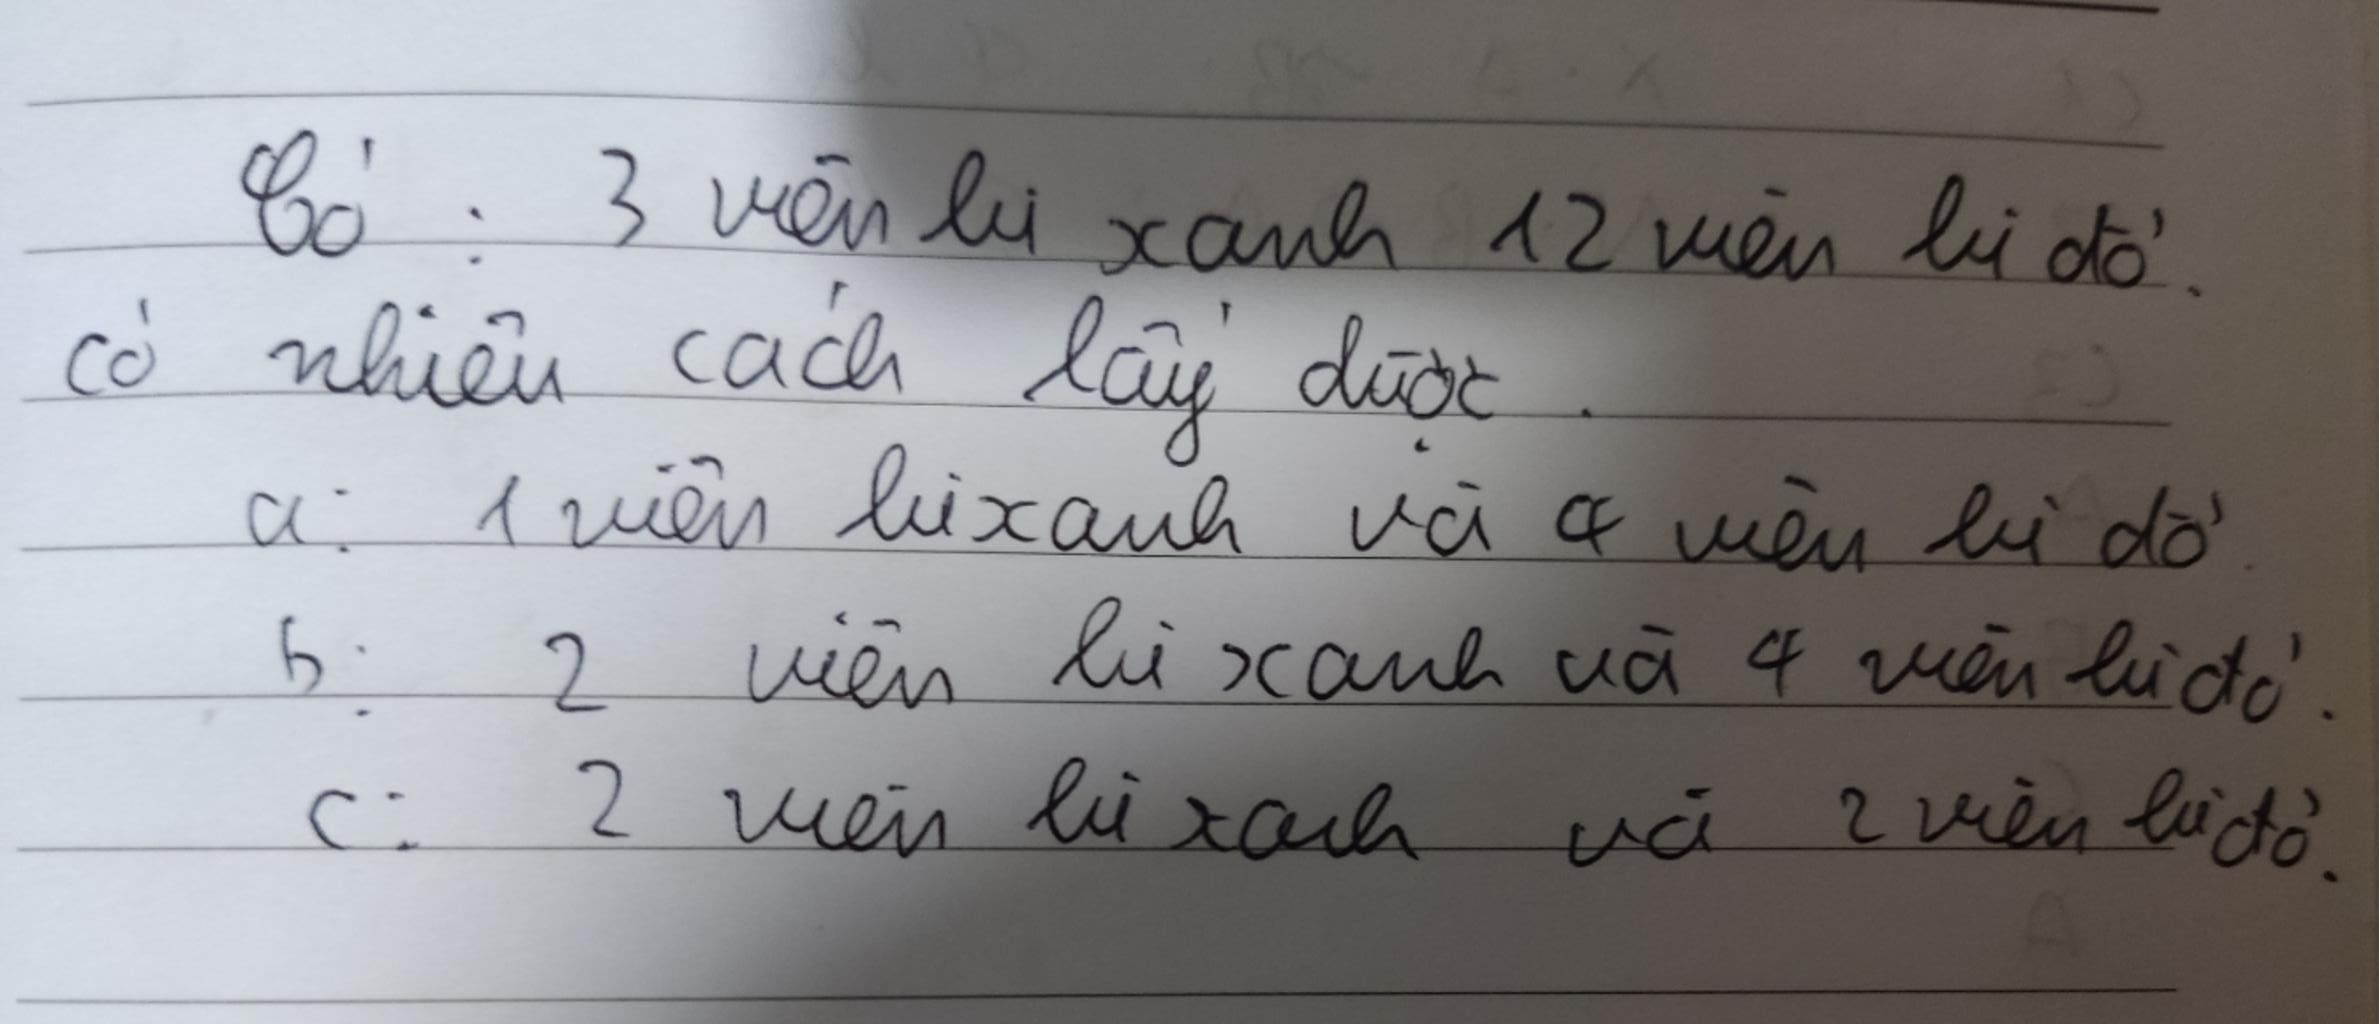 Có : 3 viên bi xanh 12 viên bi đỏ.
có nhiêu cách lấy được.
a: 1 viên bi xanh và 4 viên bi đỏ
b: 2 viên bi xanh và 4 viên bi đỏ.
c: 2 viên bi xanh và 2 viên bi đỏ.